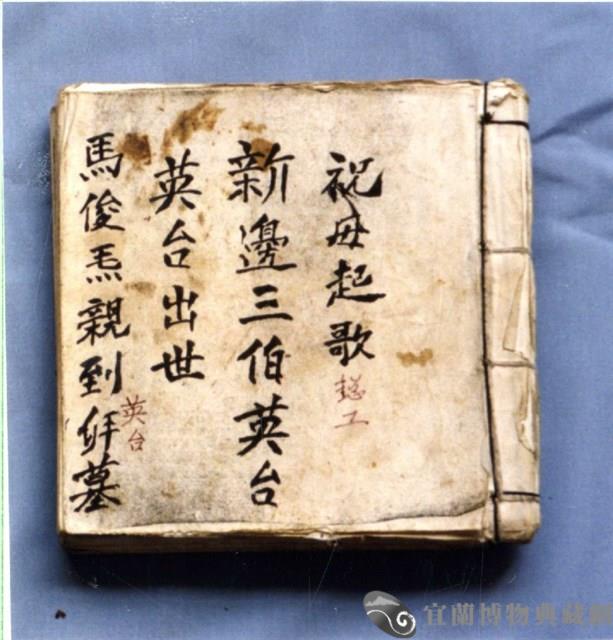 祝毋起歌
工
新邊三伯英台
英台出世
馬俊𤆬親到墓
英台
宜蘭博物典藏網